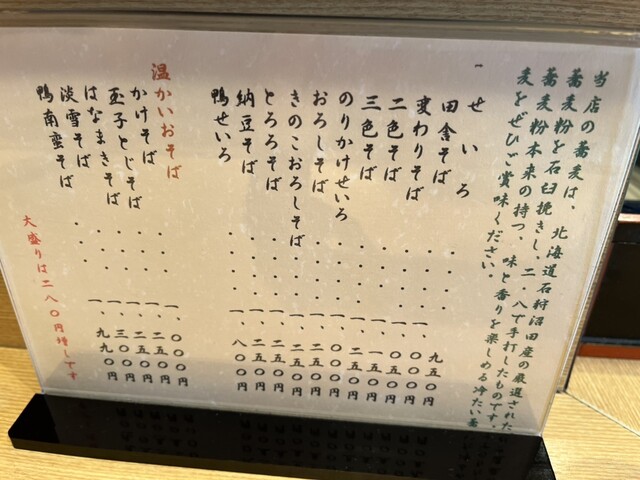 当店の蕎麦は、北海道石狩沼田産の厳選された
蕎麦粉を石臼挽きし、二・八で手打したものです。
蕎麦粉本来の持つ、味と香りを楽しめる冷たい蕎
麦をぜひご賞味ください。
せいろ・・・九五〇円
田舎そば
変わりそば
二色そば
三色そば
のりかけせいろ
おろしそば
きのこおろしそば
とろろそば
納豆そば・・・一、二五〇円
鴨せいろ・・・一、八〇〇円
温かいおそば
かけそば・・・一、〇〇〇円
玉子とじそば・・・一、二五〇円
はなまきそば・・・一、二五〇円
淡雪そば・・・一、三〇〇円
鴨南蛮そば・・・一、九九〇円
大盛りは二八〇円増しです